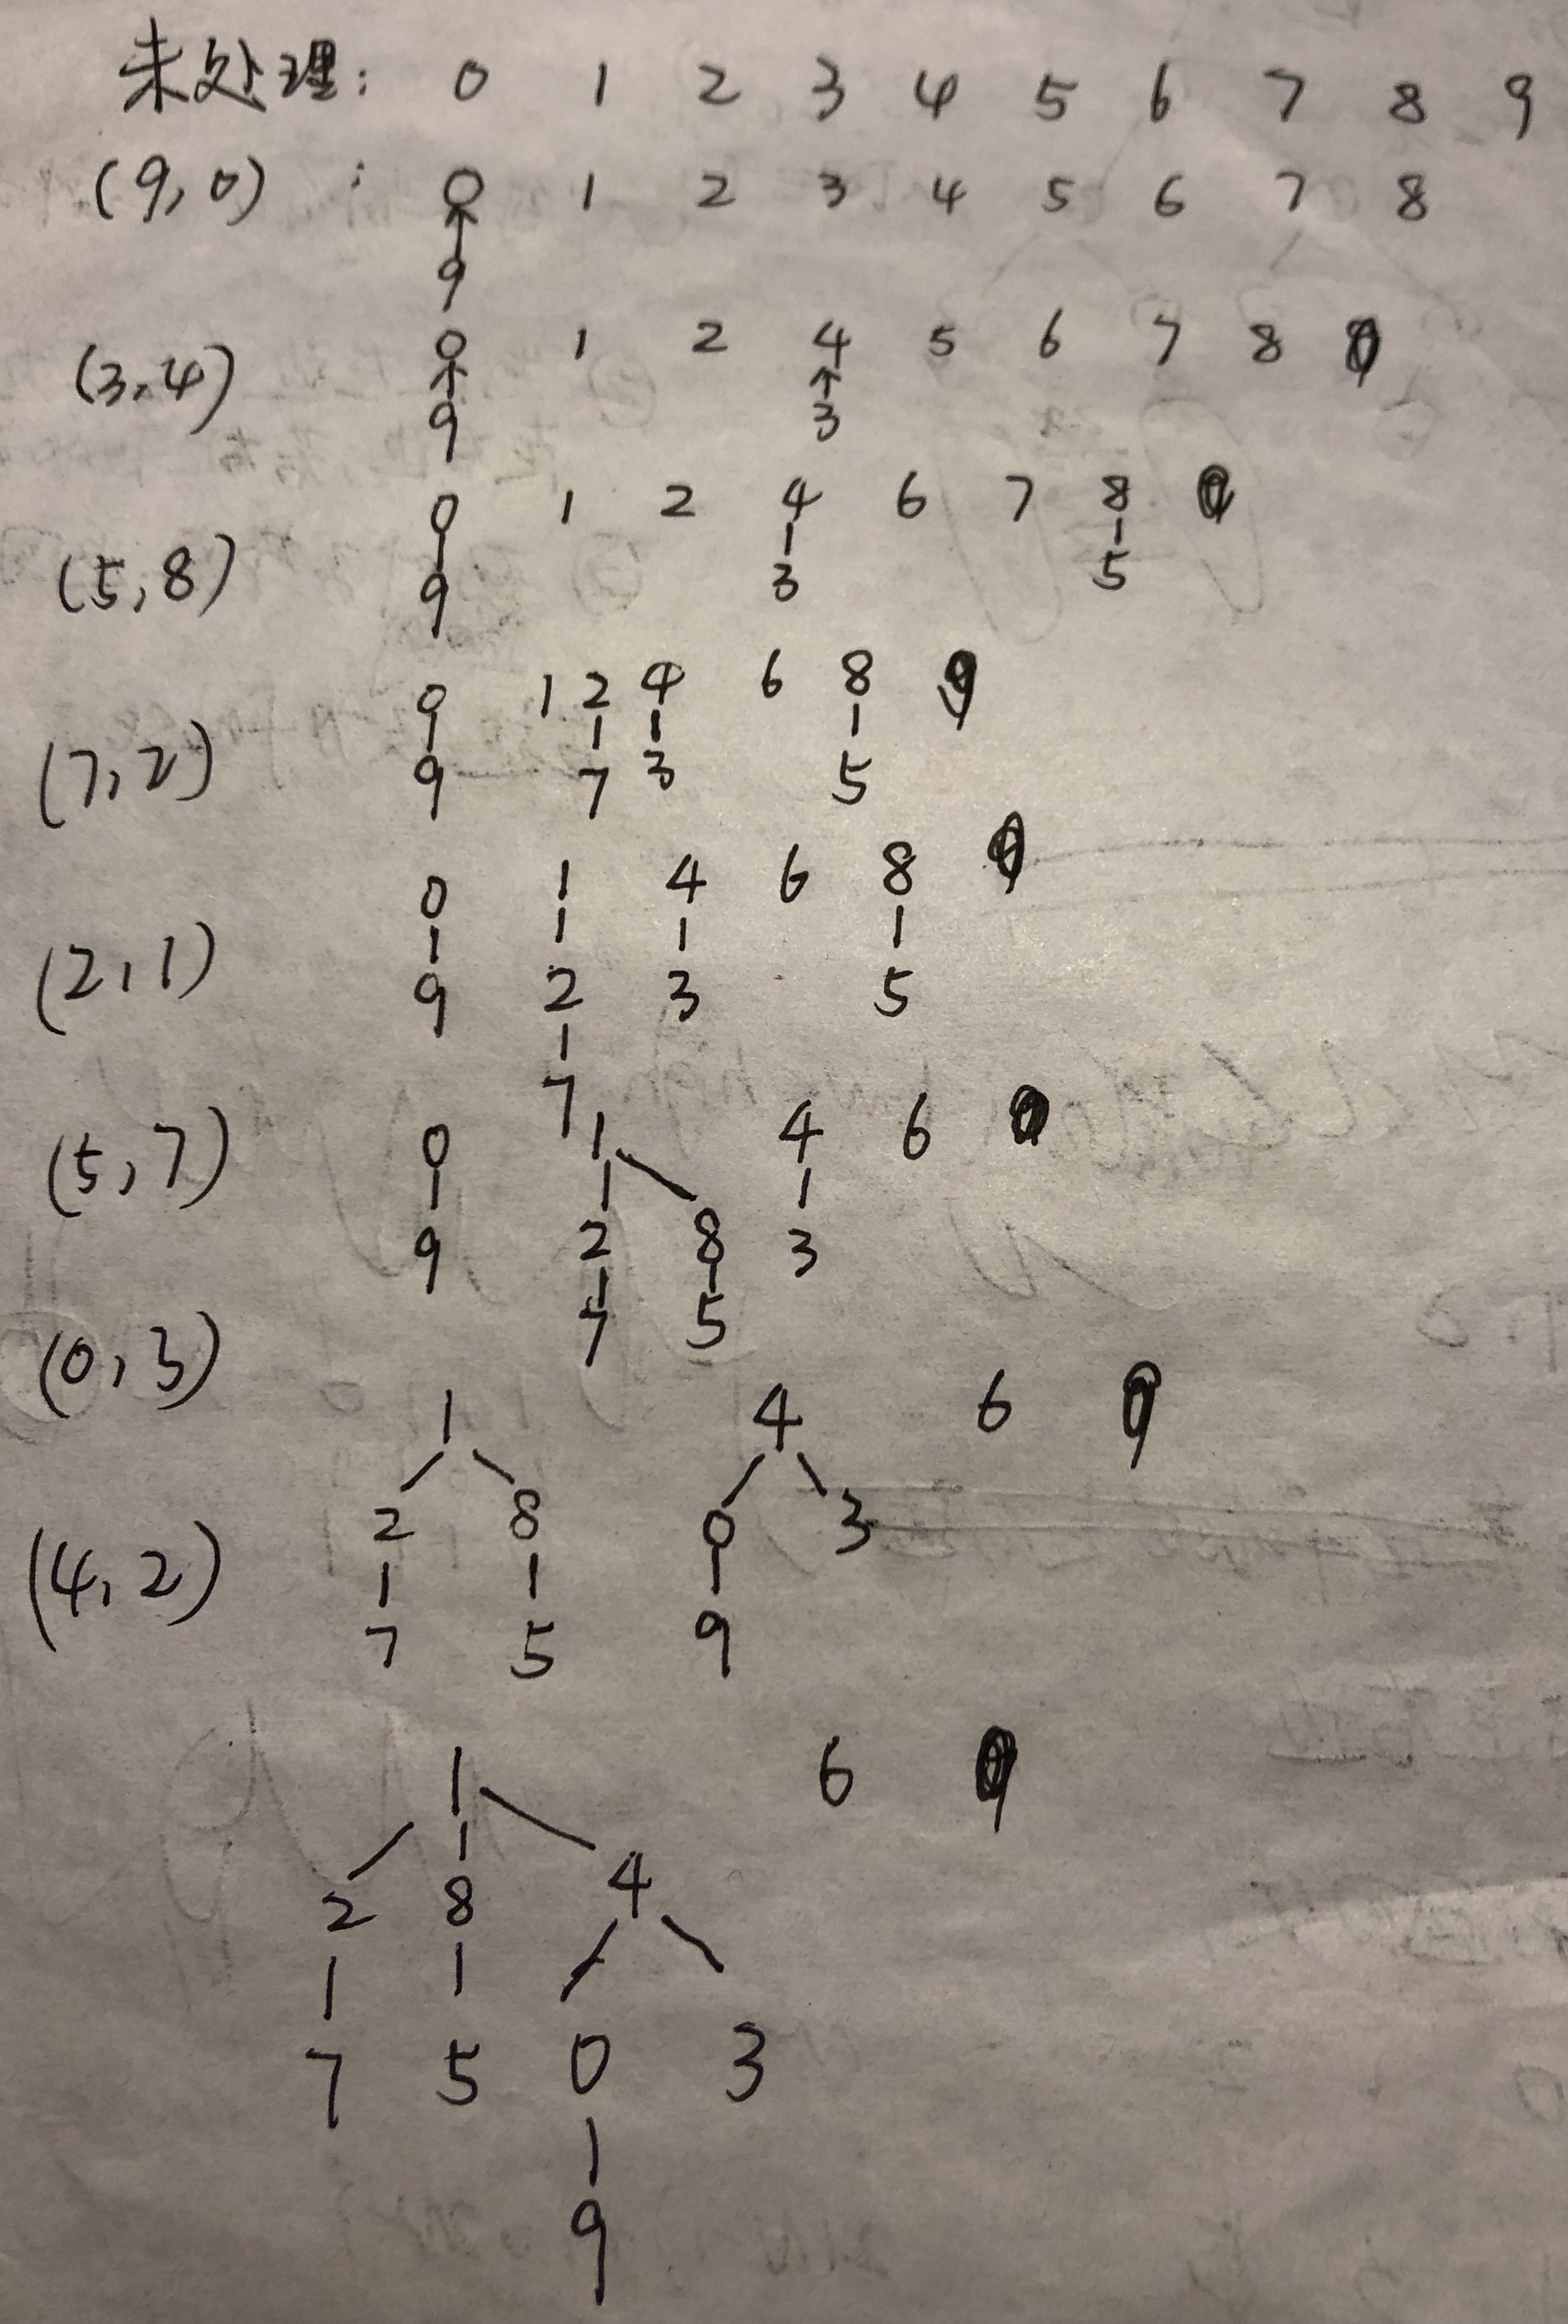 未处理: 0 1 2 3 4 5 6 7 8 9
(9,0) : 0 1 2 3 4 5 6 7 8
9
(3,4) 0 1 2 4 5 6 7 8
9 3
0 1 2 4 6 7 8
(5,8) 9 3 5
0 1 2 4 6 8
(7,2) 9 7 3 5
0 1 4 6 8
(2,1) 9 2 3 5
7
(5,7) 0 1 4 6
9 2 8 3
7 5
(0,3)
1 4 6
2 8 0 3
(4,2)
7 5 9
1 6
2 8 4
7 5 0 3
9